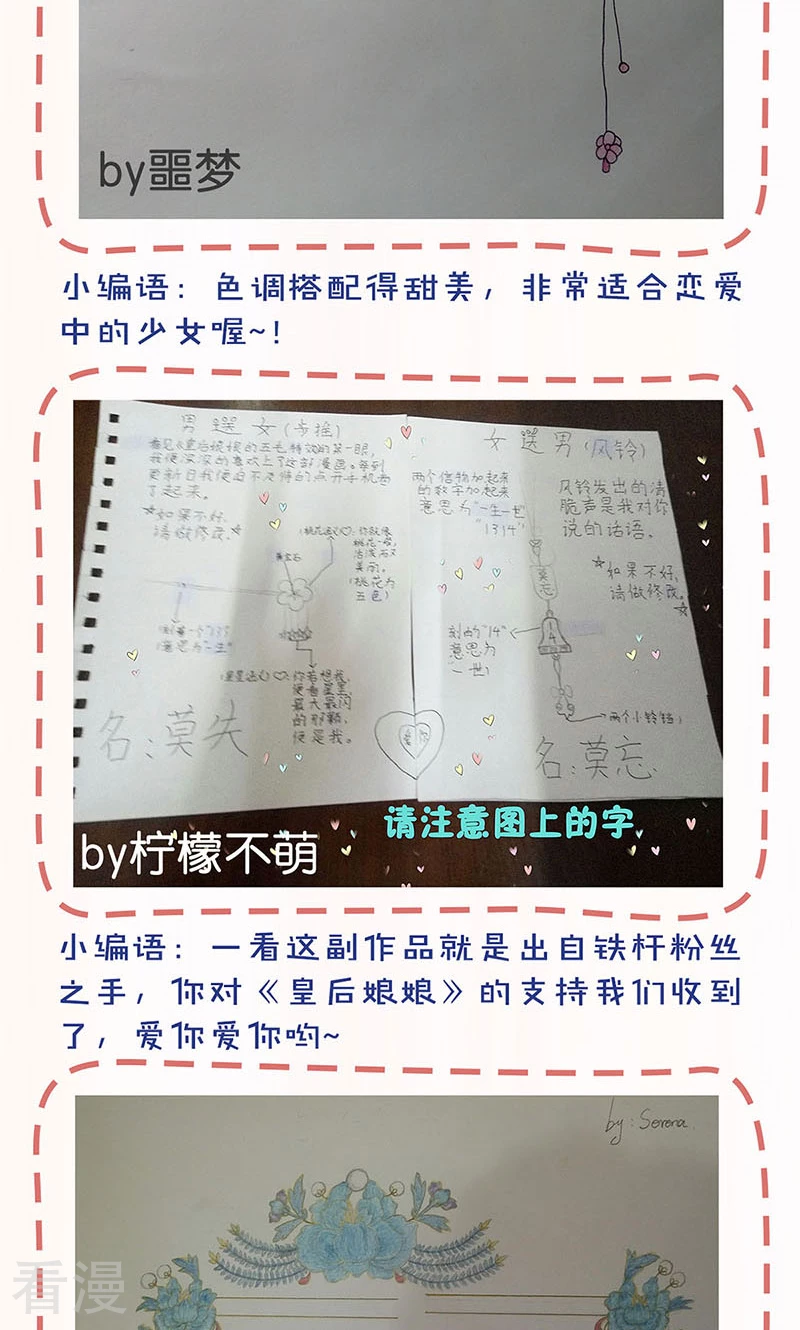 by噩梦
小编语：色调搭配得甜美，非常适合恋爱
中的少女喔~！
男送女（步摇）
看见《皇后娘娘的五毛特效的第一眼，
我便深深的喜欢上了这部漫画。每到
更新日我便迫不及待的点开手机看
了起来。
☆如果不好，
请做修改。☆
（桃花送心♡：你就像
桃花一般，
活泼而又
美丽。
（桃花为
五色）
黄宝石
意思为“一生”
（星星送心♡：你若想我，
便看星星，
最大最闪
的那颗，
便是我。
名：莫失
女送男（风铃）
两个信物加起来
的数字加起来
意思为“一生一世”
“1314”
风铃发出的清
脆声是我对你
说的话语。
☆如果不好，
请做修改。
☆
莫忘
14
刻的“14”
意思为
“一世）
两个小铃铛）
名：莫忘
爱你
请注意图上的字
by柠檬不萌
小编语：一看这副作品就是出自铁杆粉丝
之手，你对《皇后娘娘》的支持我们收到
了，爱你爱你哟~
by：Serena.
看漫